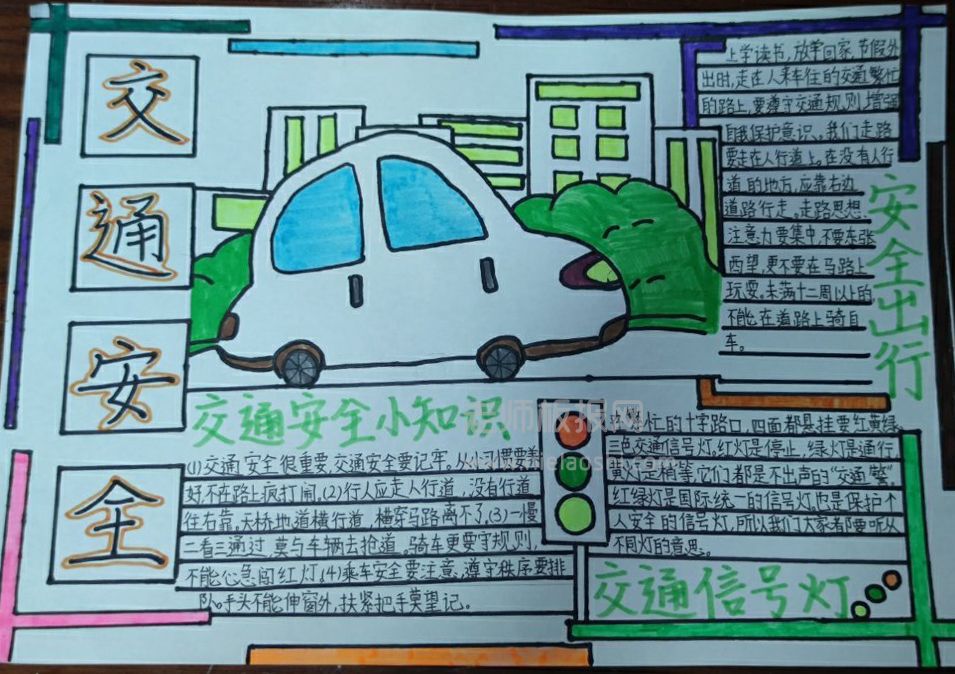 交
通
安
全
上学读书，放学回家，节假外
出时，走在人来车往的交通繁忙
的路上，要遵守交通规则，增强
自我保护意识、我们走路
要走在人行道上。在没有人行
道的地方，应靠右边
道路行走。走路思想
注意力要集中，不要东张
西望，更不要在马路上
玩耍。未满十二周以上的
不能在道路上骑自
车。
安全出行
交通安全小知识
(1)交通安全很重要，交通安全要记牢，从小习惯要养
好不在路上疯打闹。(2)行人应走人行道，没有行道
往右靠，天桥地道横行道，横穿马路离不了。(3)一慢
二看三通过，莫与车辆去抢道。骑车更要守规则，
不能心急闯红灯。(4)乘车安全要注意、遵守秩序要排
队。手头不能伸窗外，扶紧把手莫望记。
忙的十字路口，四面都悬挂要红黄绿
三色交通信号灯，红灯是停止，绿灯是通行，
黄灯是稍等，它们都是不出声的“交通警”
红绿灯是国际统一的信号灯，也是保护个
人安全的信号灯，所以我们大家都要听从
不同灯的意思。
交通信号灯